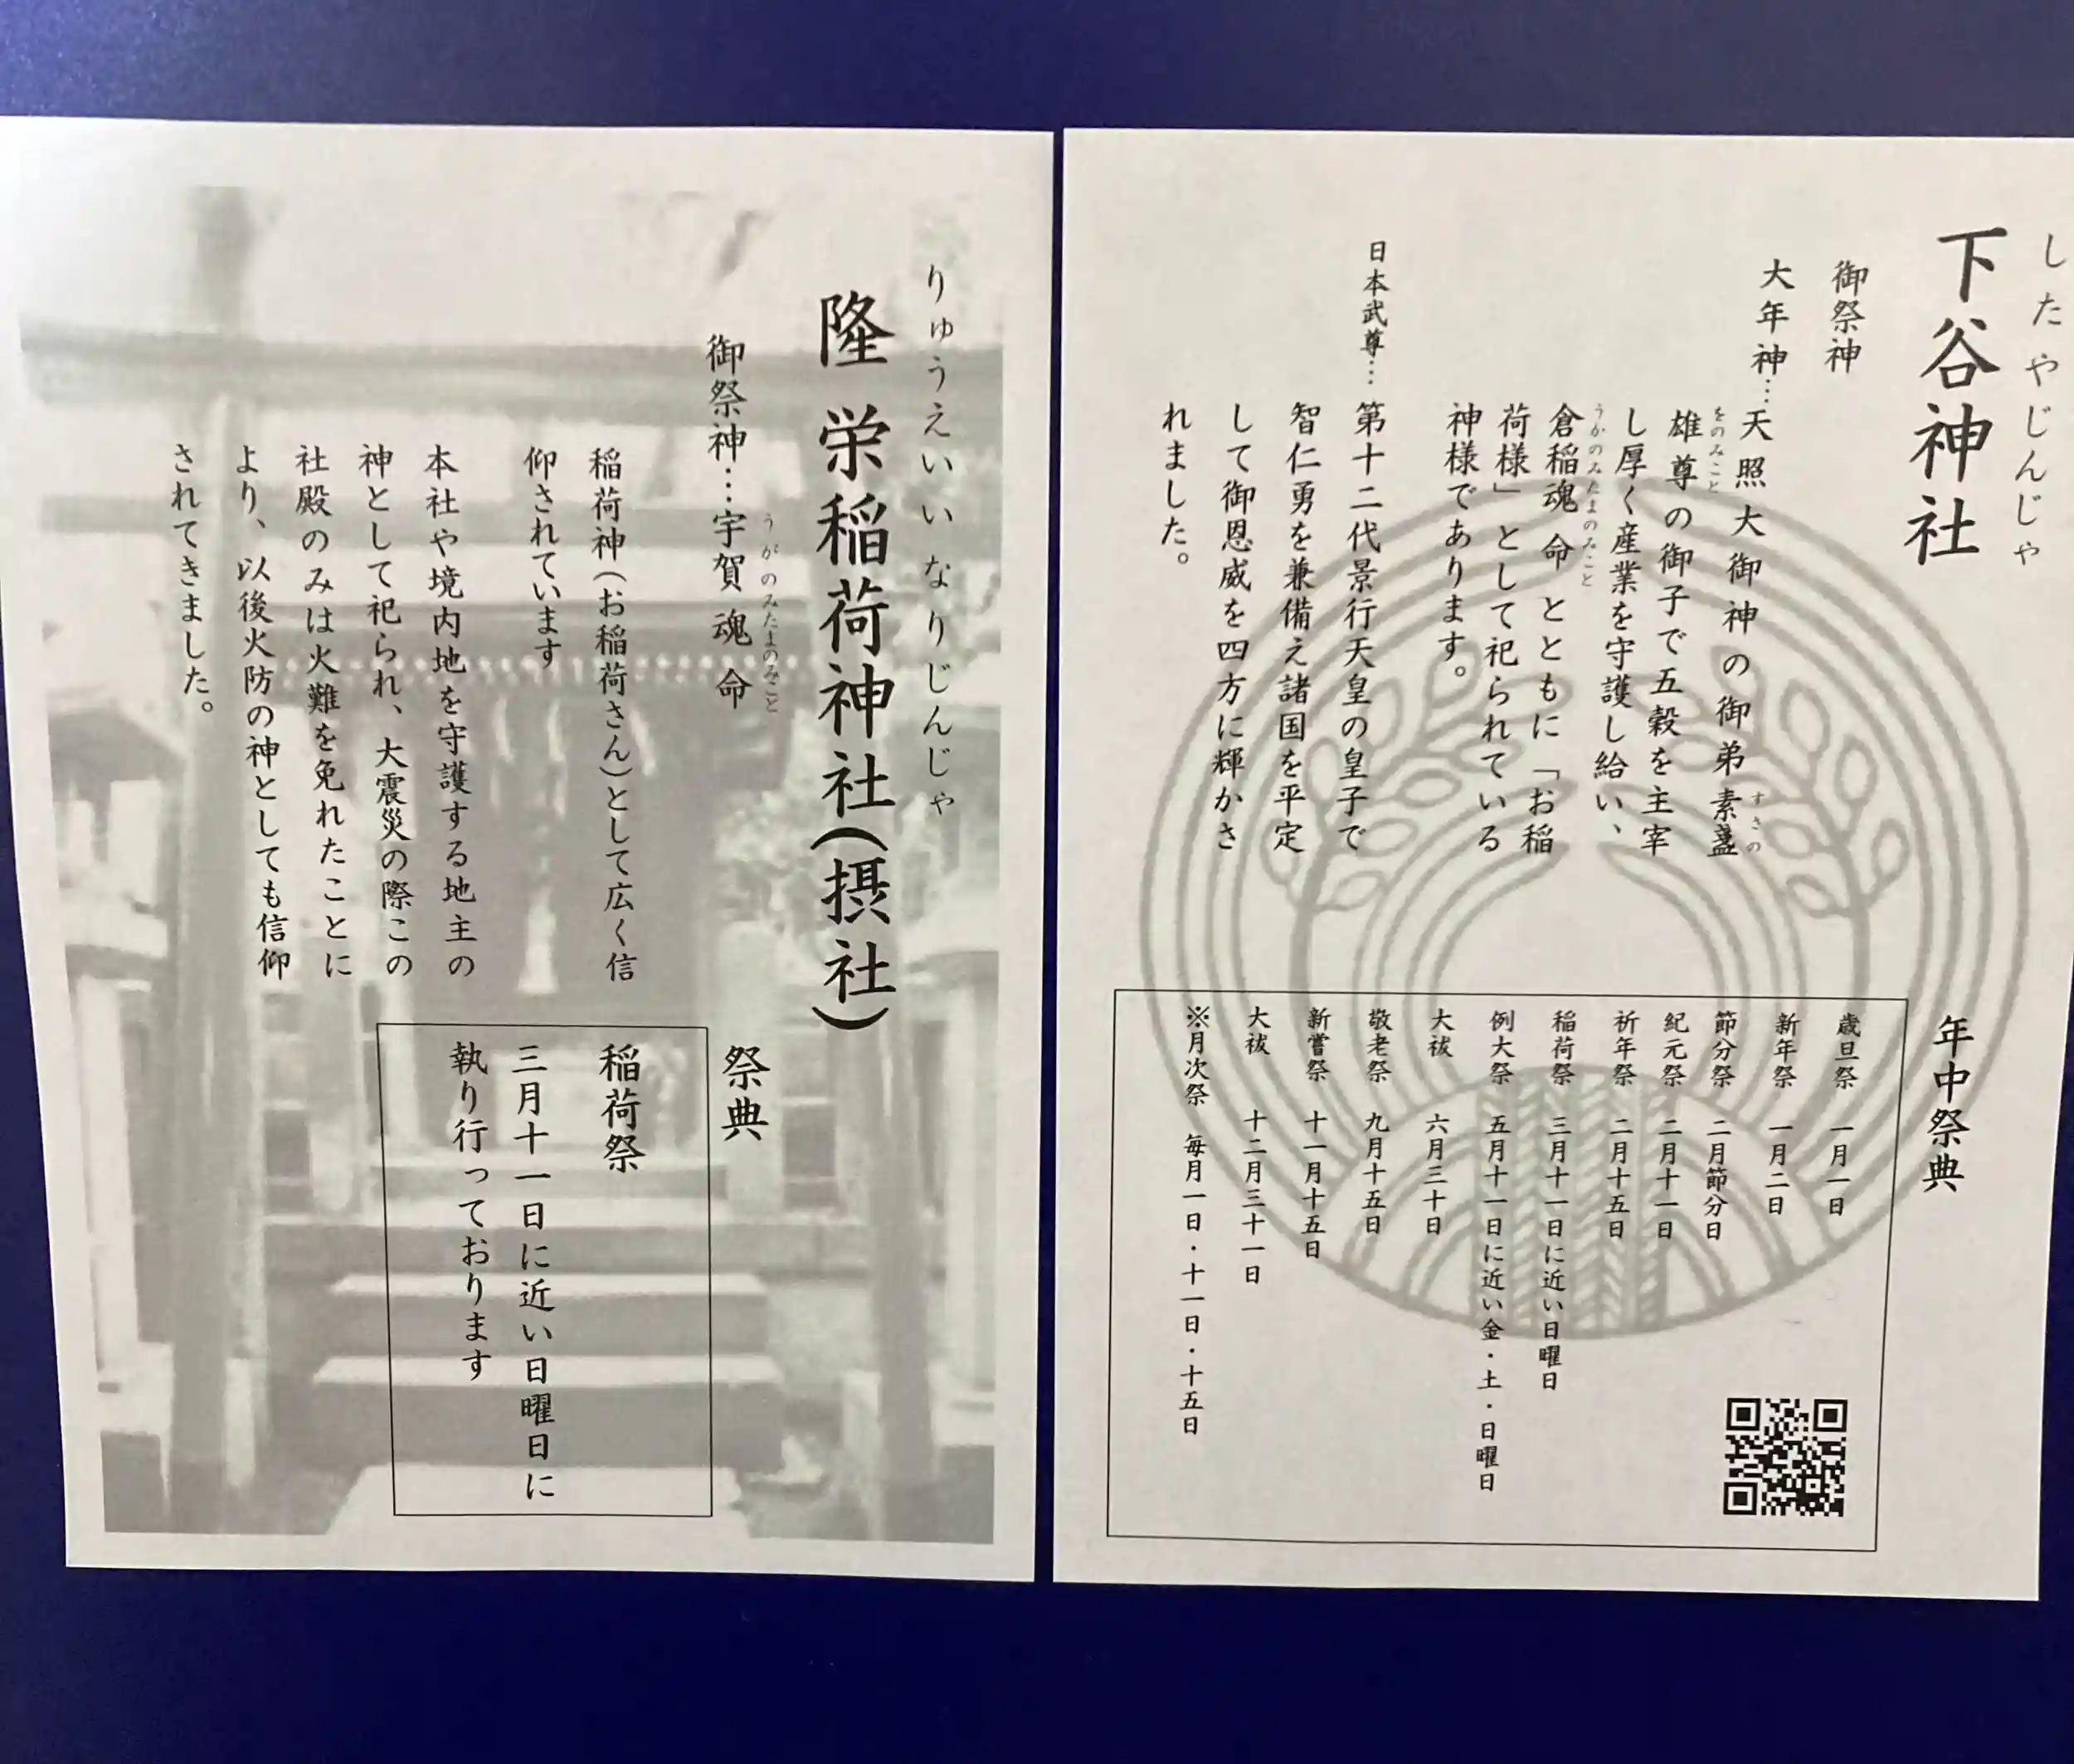 したやじんじゃ
下谷神社
御祭神
大年神…天照大御神の御弟素盞
すさの
雄尊の御子で五穀を主宰
をのみこと
し厚く産業を守護し給い、
倉稲魂命とともに「お稲
うかのみたまのみこと
荷様」として祀られている
神様であります。
日本武尊…第十二代景行天皇の皇子で
智仁勇を兼備え諸国を平定
して御恩威を四方に輝かさ
れました。
年中祭典
歳旦祭 一月一日
新年祭 一月二日
節分祭 二月節分日
紀元祭 二月十一日
祈年祭 二月十五日
稲荷祭 三月十一日に近い日曜日
例大祭 五月十一日に近い金・土・日曜日
大祓 六月三十日
敬老祭 九月十五日
新嘗祭 十一月十五日
大祓 十二月三十一日
※月次祭 毎月一日・十一日・十五日
りゅうえいいなりじんじゃ
隆栄稲荷神社(摂社)
御祭神…宇賀魂命
うがのみたまのみこと
稲荷神(お稲荷さん)として広く信
仰されています
本社や境内地を守護する地主の
神として祀られ、大震災の際この
社殿のみは火難を免れたことに
より、以後火防の神としても信仰
されてきました。
祭典
稲荷祭
三月十一日に近い日曜日に
執り行っております